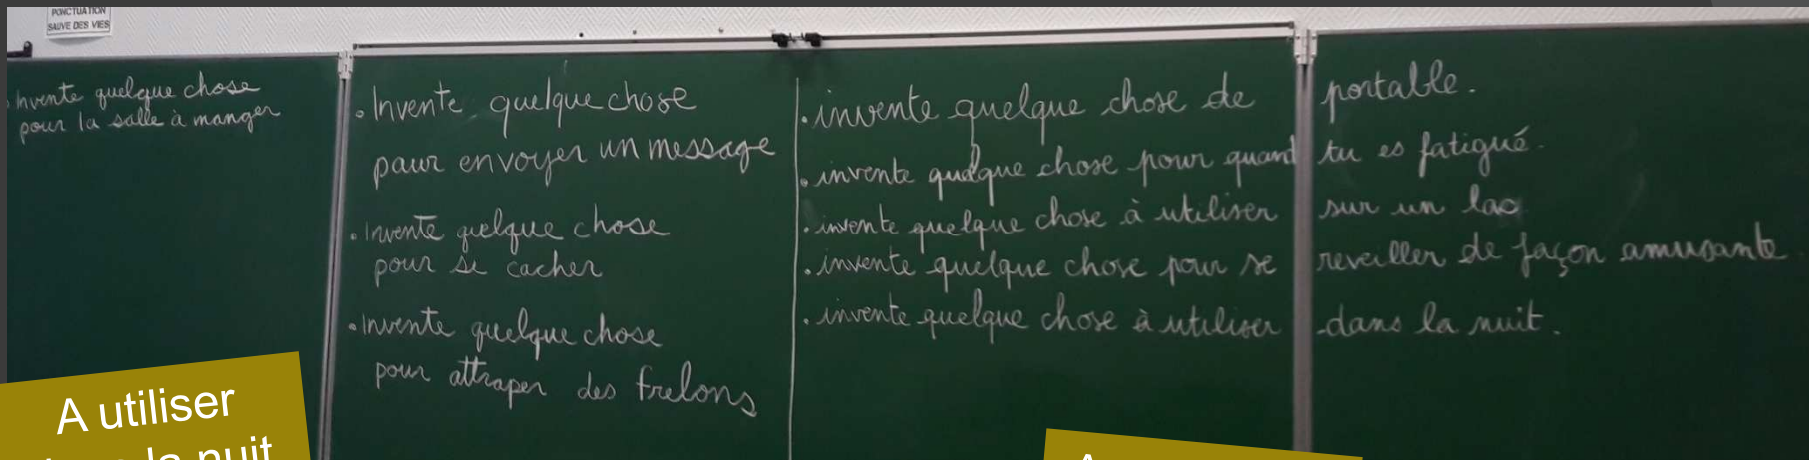 PONCTUATION
SAUVE DES VIES
Invente quelque chose
pour la salle à manger
. Invente quelque chose
pour envoyer un message
. Invente quelque chose
pour se cacher
. Invente quelque chose
pour attraper des frelons
. invente quelque chose de portable.
. invente quelque chose pour quand tu es fatigué.
. invente quelque chose à utiliser sur un lac
. invente quelque chose pour se reveiller de façon amusante
. invente quelque chose à utiliser dans la nuit.
A utiliser
la nuit